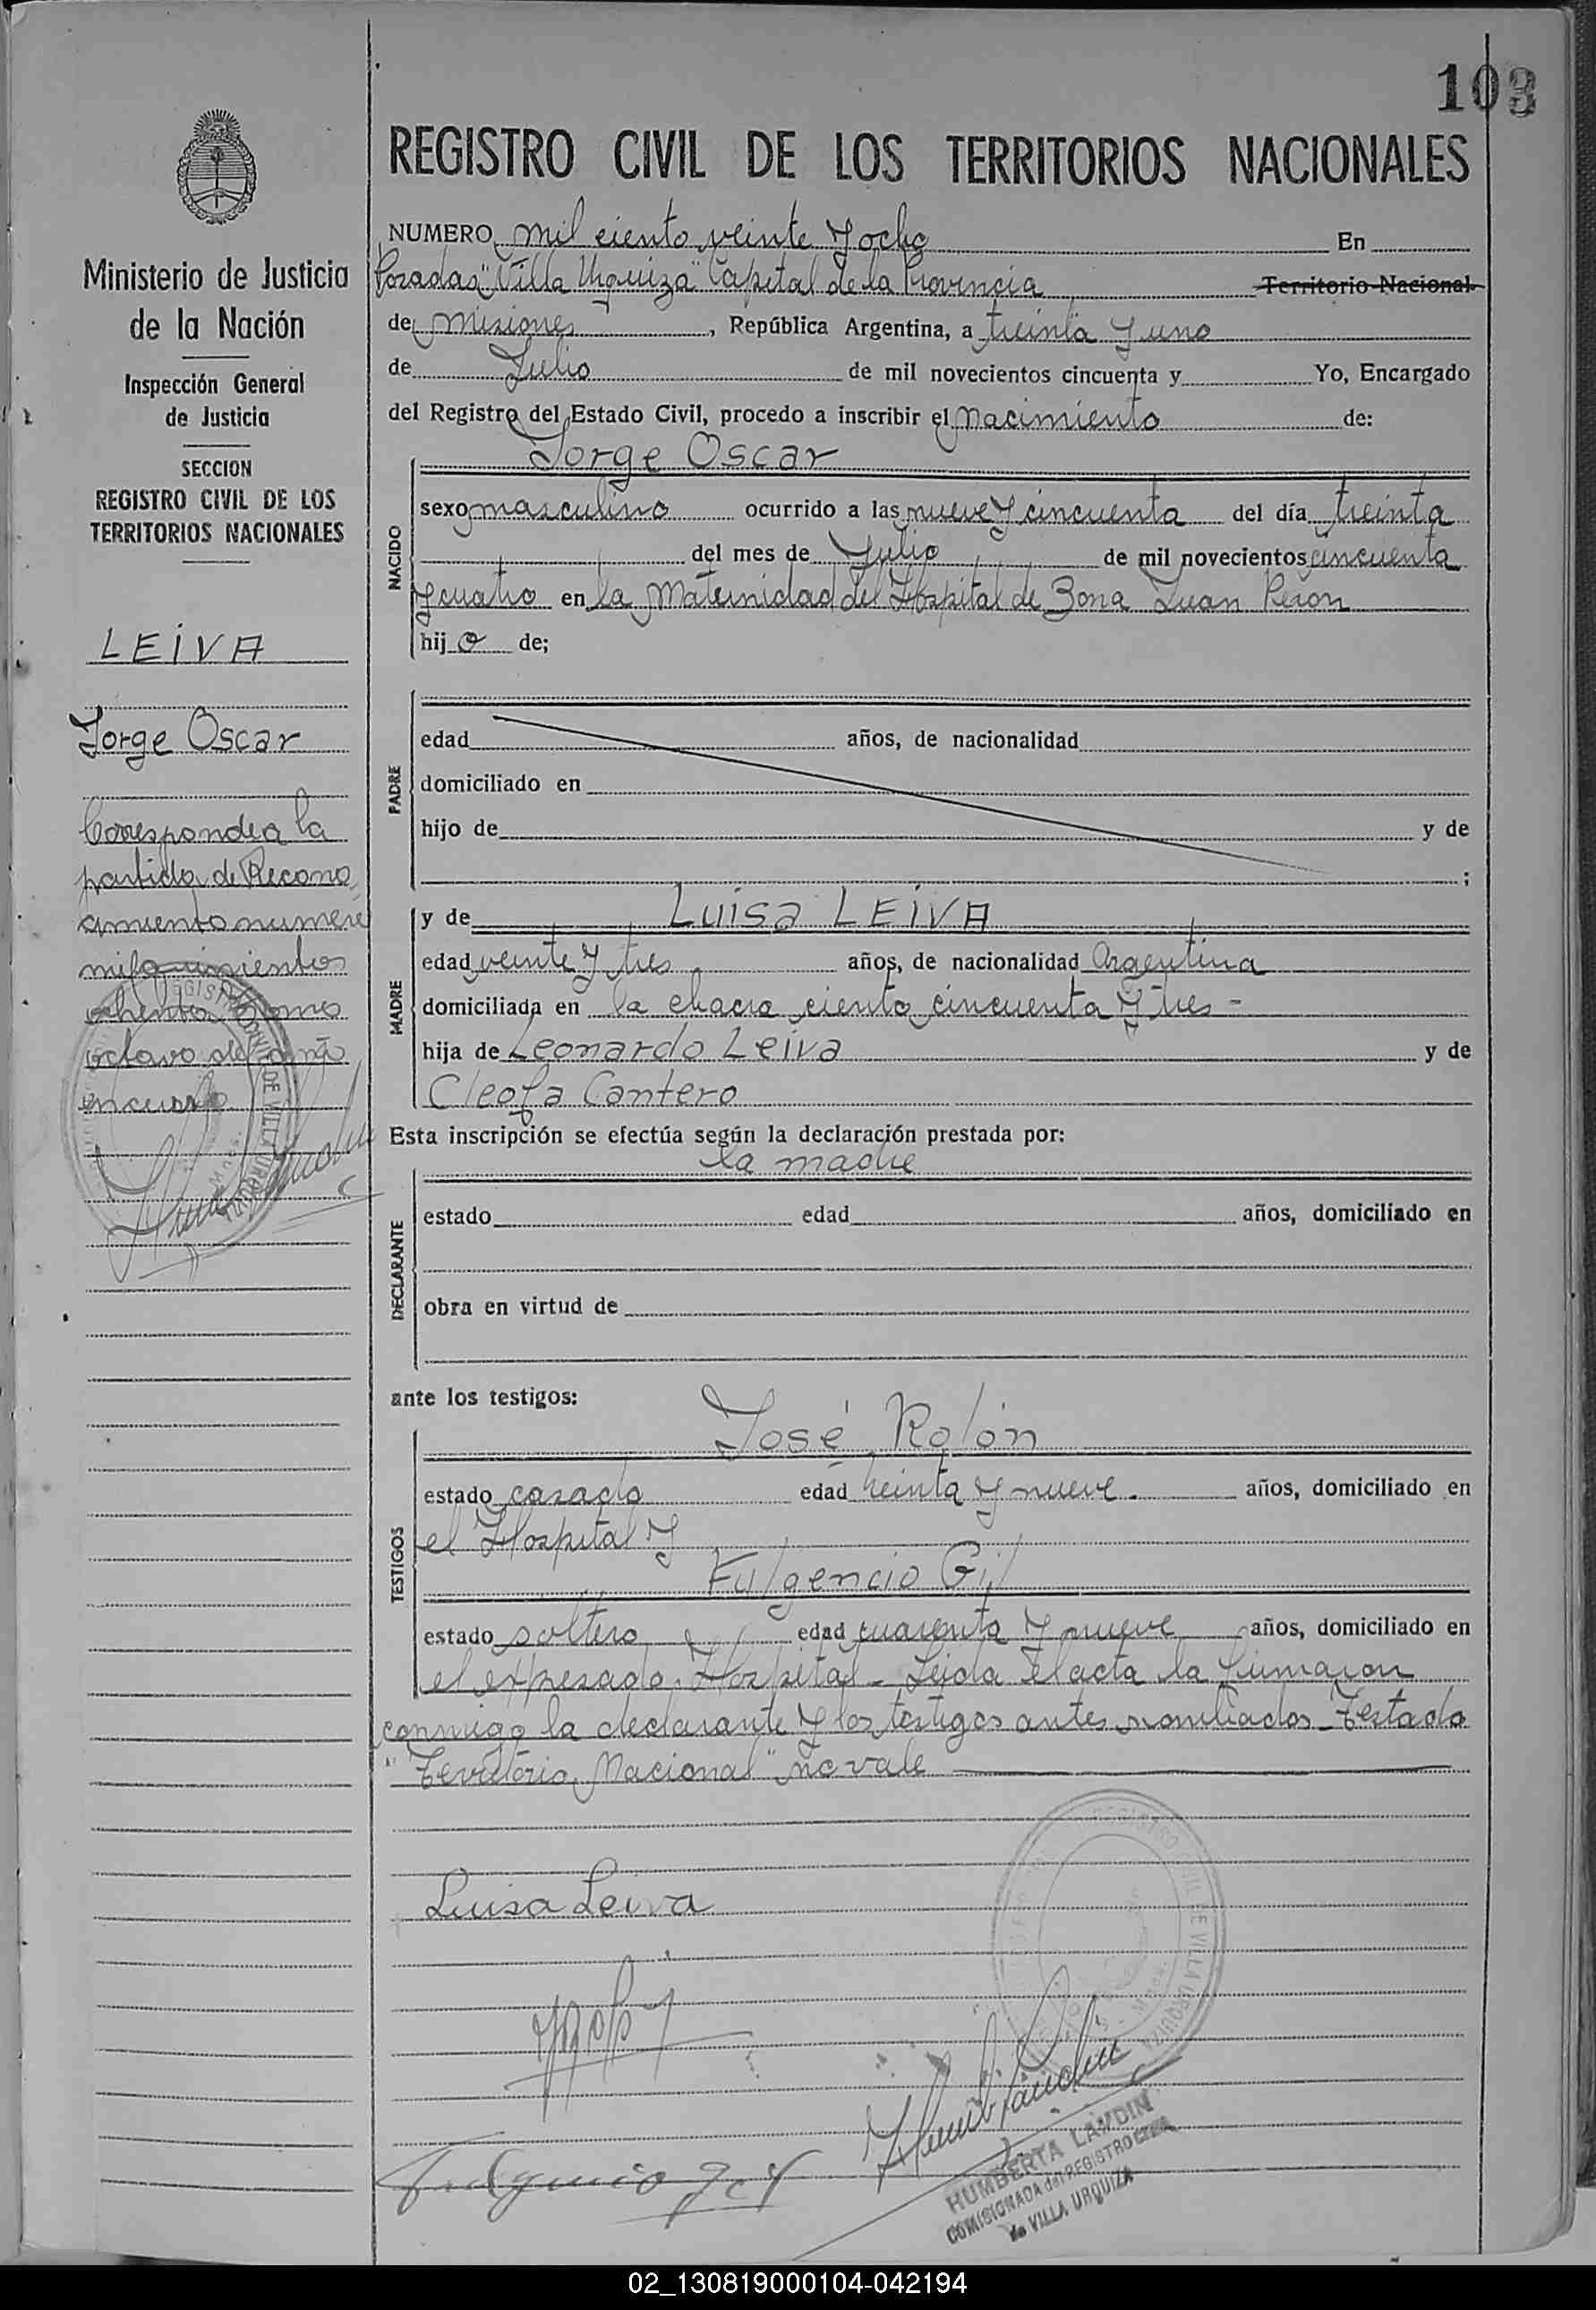 103
REGISTRO CIVIL DE LOS TERRITORIOS NACIONALES
Ministerio de Justicia
de la Nación
Inspección General
de Justicia
SECCION
REGISTRO CIVIL DE LOS
TERRITORIOS NACIONALES
LEIVA
Jorge Oscar
Corresponde a la
partida de Recono
cimiento numero
mil quinientos
ochenta tomo
octavo del año
en curso
NUMERO mil ciento veinte y ocho En
Posadas "Villa Urquiza" Capital de la Provincia Territorio Nacional
de Misiones, República Argentina, a treinta y uno
de Julio de mil novecientos cincuenta y Yo, Encargado
del Registro del Estado Civil, procedo a inscribir el Nacimiento de:
Jorge Oscar
NACIDO
sexo masculino ocurrido a las nueve y cincuenta del día treinta
del mes de Julio de mil novecientos cincuenta
y cuatro en la Maternidad del Hospital de Zona Juan Peron
hijo de;
PADRE
edad años, de nacionalidad
domiciliado en
hijo de y de
;
MADRE
y de Luisa LEIVA
edad veinte y tres años, de nacionalidad Argentina
domiciliada en la chacra ciento cincuenta y tres -
hija de Leonardo Leiva y de
Cleofa Cantero
Esta inscripción se efectúa según la declaración prestada por:
la madre
DECLARANTE
estado edad años, domiciliado en
obra en virtud de
ante los testigos:
TESTIGOS
José Rolón
estado casado edad treinta y nueve. años, domiciliado en
el Hospital y
Fulgencio Gil
estado soltero edad cuarenta y nueve años, domiciliado en
el expresado Hospital - Leida el acta la firmaron
conmigo la declarante y los testigos antes nombrados - Testado
"Territorio Nacional" no vale
Luisa Leiva
Fulgencio Gil
HUMBERTA LANDIN
COMISIONADA del REGISTRO CIVIL
de VILLA URQUIZA
02_130819000104-042194